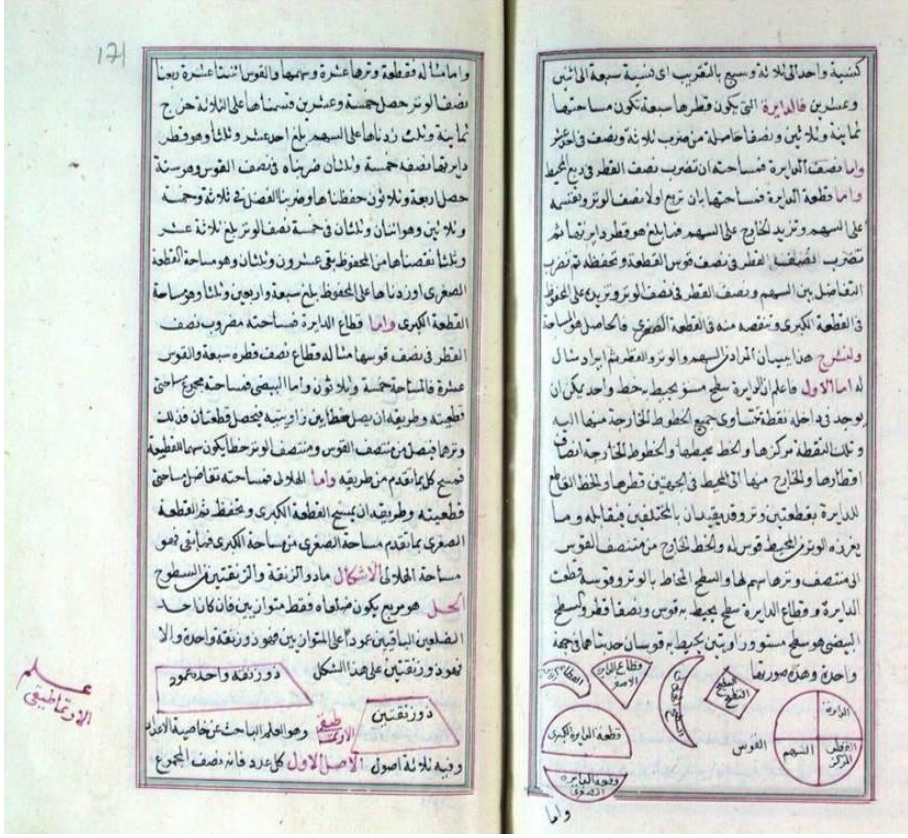 كنسبة واحد الى ثلاثة وسبع بالتقريب اى نسبة سبعة الى اثنين
وعشرين فالدايرة التى يكون قطرها سبعة تكون مساحتها
ثمانية وثلاثين ونصفا حاصلة من ضرب ثلاثة ونصف فى احد عشر
واما نصف الدايرة فمساحته ان تضرب نصف القطر فى ربع المحيط
واما قطعة الدايرة فمساحتها بان تربع اولا نصف الوتر وتقسمه
على السهم وتزيد الخارج على السهم فما بلغ هو قطر دايرتها ثم
تضرب نصف القطر فى نصف قوس القطعة وتحفظه ثم تضرب
التفاضل بين السهم ونصف القطر فى نصف الوتر وتزيده على المحفوظ
فى القطعة الكبرى وتنقصه منه فى القطعة الصغرى فالحاصل هو المساحة
ولنشرح هذا ببيان المراد من السهم والوتر والقطر ثم ايراد مثال
له اما الاول فاعلم ان الدايرة سطح مستو يحيط به خط واحد يمكن ان
يوجد فى داخله نقطة تتساوى جميع الخطوط الخارجة منها اليه
وتلك النقطة مركزها والخط محيطها والخطوط الخارجة انصاف
اقطارها والخارج منها الى المحيط فى الجهتين قطرها والخط القاطع
للدايرة بقطعتين وتر وقد يقيدان بالمختلفين فيقابله وما
يفرزه الوتر من المحيط قوس له والخط الخارج من منتصف القوس
الى منتصف وترها سهم لها والسطح المحاط بالوتر وقوسه قطعة
الدايرة وقطاع الدايرة سطح يحيط به قوس ونصفا قطر والسطح
البيضى هو سطح مستو وزاويتين يحيط به قوسان حدبتاهما فى جهة
واحدة وهذه صورتها
قطاع الدايرة الاصغر
السطح الهلالى
السطح
الدايرة
المركز
السهم
القوس
قطعة الدايرة الكبرى
قطعة الدايرة الصغرى
واما
171
واما مثاله فقطعة وترها عشرة وسهمها والقوس اثنتا عشرة ربعنا
نصف الوتر حصل خمسة وعشرين قسمناها على الثلاثة خرج
ثمانية وثلث زدناها على السهم بلغ احد عشر وثلثا وهو قطر
دايرتها نصفه خمسة وثلثان ضربناه فى نصف القوس وهو ستة
حصل اربعة وثلاثون حفظناها وضربنا الفضل فى ثلاثة وخمسة
وثلاثين وهو اثنان وثلثان فى خمسة نصف الوتر بلغ ثلاثة عشر
وثلثا نقصناها من المحفوظ بقى عشرون وثلثان وهو مساحة القطعة
الصغرى او زدناها على المحفوظ بلغ سبعة واربعين وثلثا وهو مساحة
القطعة الكبرى واما قطاع الدايرة فمساحته مضروب نصف
القطر فى نصف قوسها مثاله قطاع نصف قطره سبعة والقوس
عشرة فالمساحة خمسة وثلاثون واما البيضى فمساحته مجموع مساحتى
قطعتيه وطريقه ان يصل خطا بين زاويتيه فيحصل قطعتان فذلك
وترها فيصل من منتصف القوس ومنتصف الوتر خطا يكون سهما للقطعة
فمسح كل بما تقدم من طريقه واما الهلالى فمساحته تفاضل مساحتى
قطعتيه وطريقه ان يمسح القطعة الكبرى ويحفظ ثم القطعة
الصغرى بما تقدم مساحة الصغرى من مساحة الكبرى فما بقى فهو
مساحة الهلالى الاشكال ما ذو الزنقة والزنقتين من السطوح
الحل هو مربع يكون ضلعاه فقط متوازيين فان كان احد
الضلعين الباقيين عمودا على المتوازيين فهو ذو زنقة واحدة والا
فهو ذو زنقتين على هذا الشكل
ذو زنقة واحدة عمود
ذو زنقتين
وهو العلم الباحث عن خاصية الاعداد
وفيه ثلاثة اصول الاصل الاول كل عدد فانه نصف المجموع
علم
الارتماطيقى